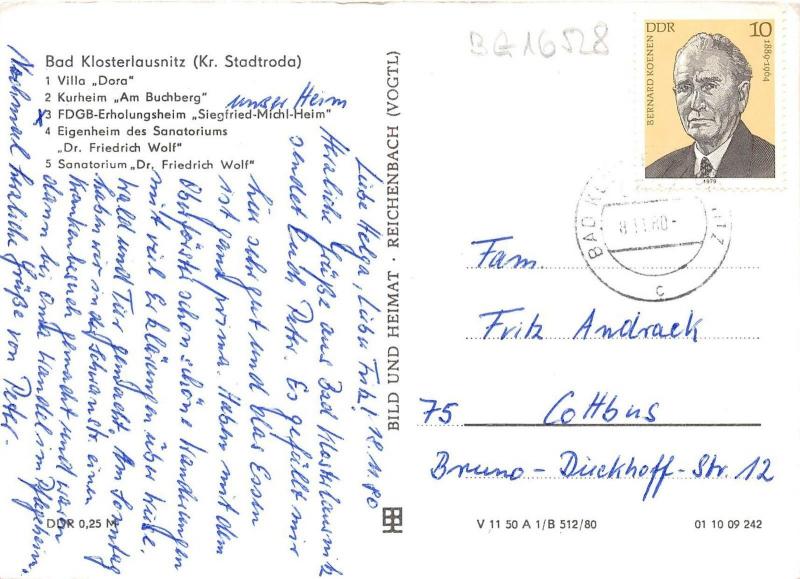 BA16528
DDR 10
BERNARD KOENEN
1889-1964
1979
BAD
8.11.80
C
Bad Klosterlausnitz (Kr. Stadtroda)
1 Villa „Dora"
2 Kurheim „Am Buchberg"
unser Heim
x
3 FDGB-Erholungsheim „Siegfried-Michl-Heim"
4 Eigenheim des Sanatoriums
„Dr. Friedrich Wolf"
5 Sanatorium „Dr. Friedrich Wolf"
Liebe Helga, Lieber Fritz! 12.11.80
Herzliche Grüße aus Bad Klosterlausnitz
sendet Euch Peter. Es gefällt mir
hier sehr gut und das Essen
ist ganz prima. Haben mit dem
Oberförster schon schöne Wanderungen
mit viel Erklärungen über
Wald und Tier gemacht. Am Sonntag
haben wir in der einen
Krankenbesuch gemacht und waren
dann bei Onka Wandel im Pflegeheim.
Nochmal herzliche Grüße von Peter.
BILD UND HEIMAT · REICHENBACH (VOGTL)
Fam.
Fritz Andrack
75 Cottbus
Bruno-Dückhoff-Str. 12
DDR 0,25 M
V 11 50 A 1/B 512/80
01 10 09 242